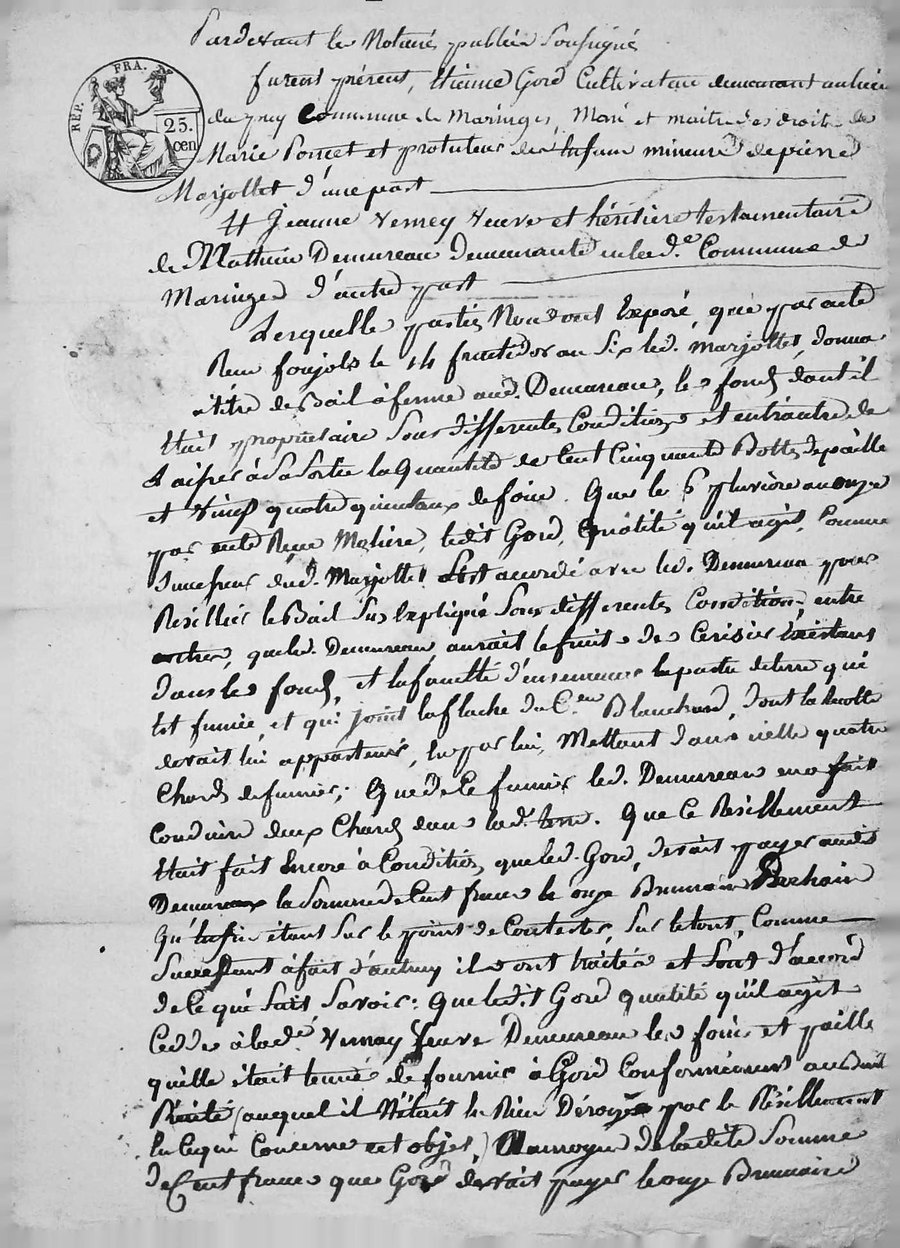 Pardevant les Notaires publics Soussignés
REP. FRA.
25.
cen
furent présent, Etienne Gord Cultivateur demeurant au lieu
du puy Commune de Maringes, Mari et maitre des droits de
Marie Poncet et protuteur des Enfans mineurs de pierre
Marjollet d'une part
Et Jeanne Verney Veuve et héritière testamentaire
de Mathieu Demureau demeurante en lad.e Commune de
Maringes d'autre part
Lesquelles parties Nous ont Exposé, que par acte
Reçu foujols le 14 fructidor an Six led. Marjollet, donna
à titre de Bail à ferme aud. Demureau, les fonds dont il
Etait propriétaire Sous différentes Conditions et entr'autre de
Laisser à Sa Sortie la Quantité de Cent Cinquante Bottes de paille
et Vingt quatre quintaux de foin. Que le 6 pluviose an onze
par acte Reçu Molière, ledit Gord, Qualité qu'il agit, Comme
Successeur dud. Marjollet S'est accordé avec led. Demureau pour
Résillier le Bail Sus Expliqué Sous différentes Conditions entre
autres, que led. Demureau aurait le fruit des Cerisiers Existans
dans les fonds, et la faculté d'ensemencer la partie de terre qui
Est fumée, et qui joint la flache du C.en Blanchard, dont la Recolte
devait lui appartenir, En par lui, Mettant dans icelle quatre
Chards de fumier; Que de Ce fumier led. Demureau en a fait
Conduire deux Chards dans lad. terre. Que Ce Résillement
Etait fait Encore à Condition que led. Gord, devait payer audit
Demureau la Somme de Cent francs le onze Brumaire Prochain
Qu'Enfin étant Sur le point de Contester, Sur le tout, Comme
Succedant à fait d'autruy ils ont traités et Sont d'accord
de Ce qui Suit Savoir: Que ledit Gord qualité qu'il agit
Cedde à lad.e Verney Veuve Demureau les foins et paille
qu'elle était tenue de fournir à Gord Conformément au Susdit
Traité (auquel il N'était En Rien Dérogé par le Résillement
En Ce qui Concerne cet objet,) Au moyen de ladite Somme
de Cent francs que Gord devait payer le onze Brumaire